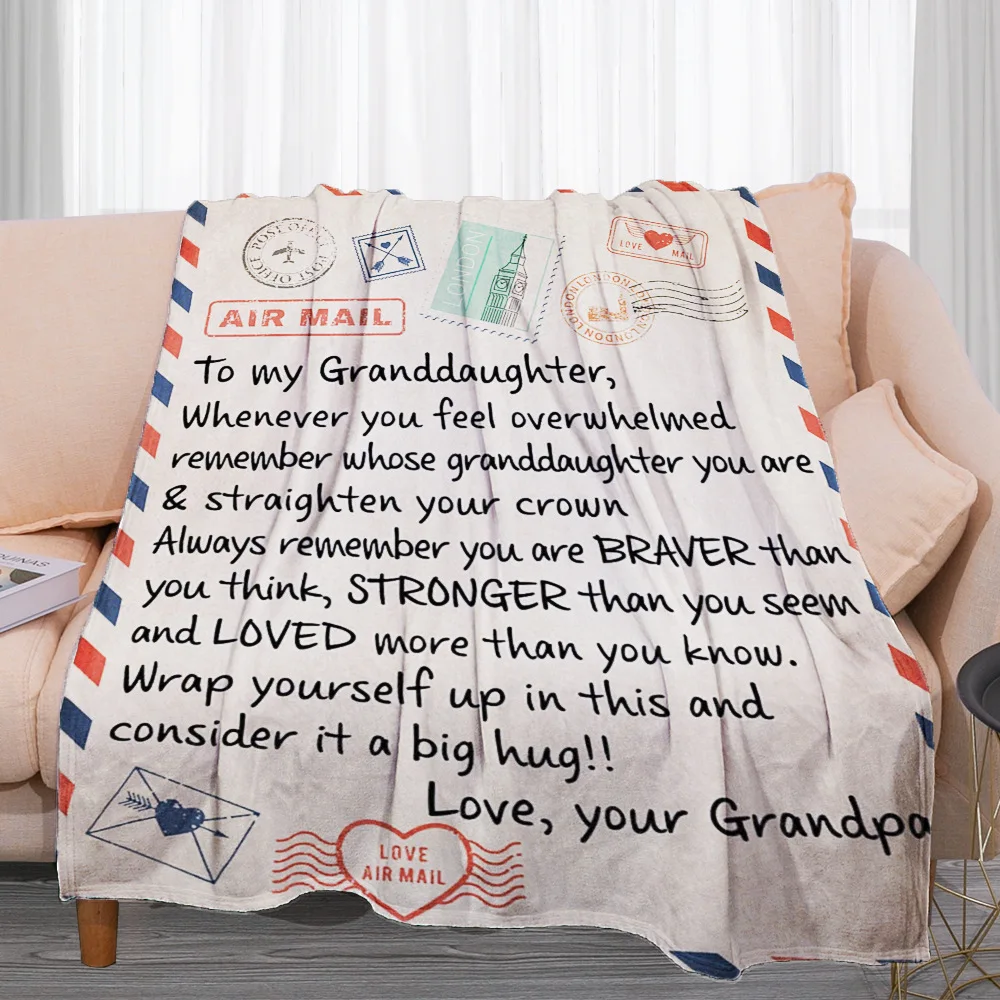 POST OFFICE POST OFFICE
LONDON
LOVE MAIL
LONDON LONDON LONDON
AIR MAIL
To my Granddaughter,
Whenever you feel overwhelmed
remember whose granddaughter you are
& straighten your crown
Always remember you are BRAVER than
you think, STRONGER than you seem
and LOVED more than you know.
Wrap yourself up in this and
consider it a big hug!!
Love, your Grandpa
LOVE
AIR MAIL